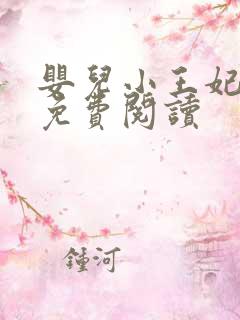 嬰兒小王妃
免費閱讀
鍾河